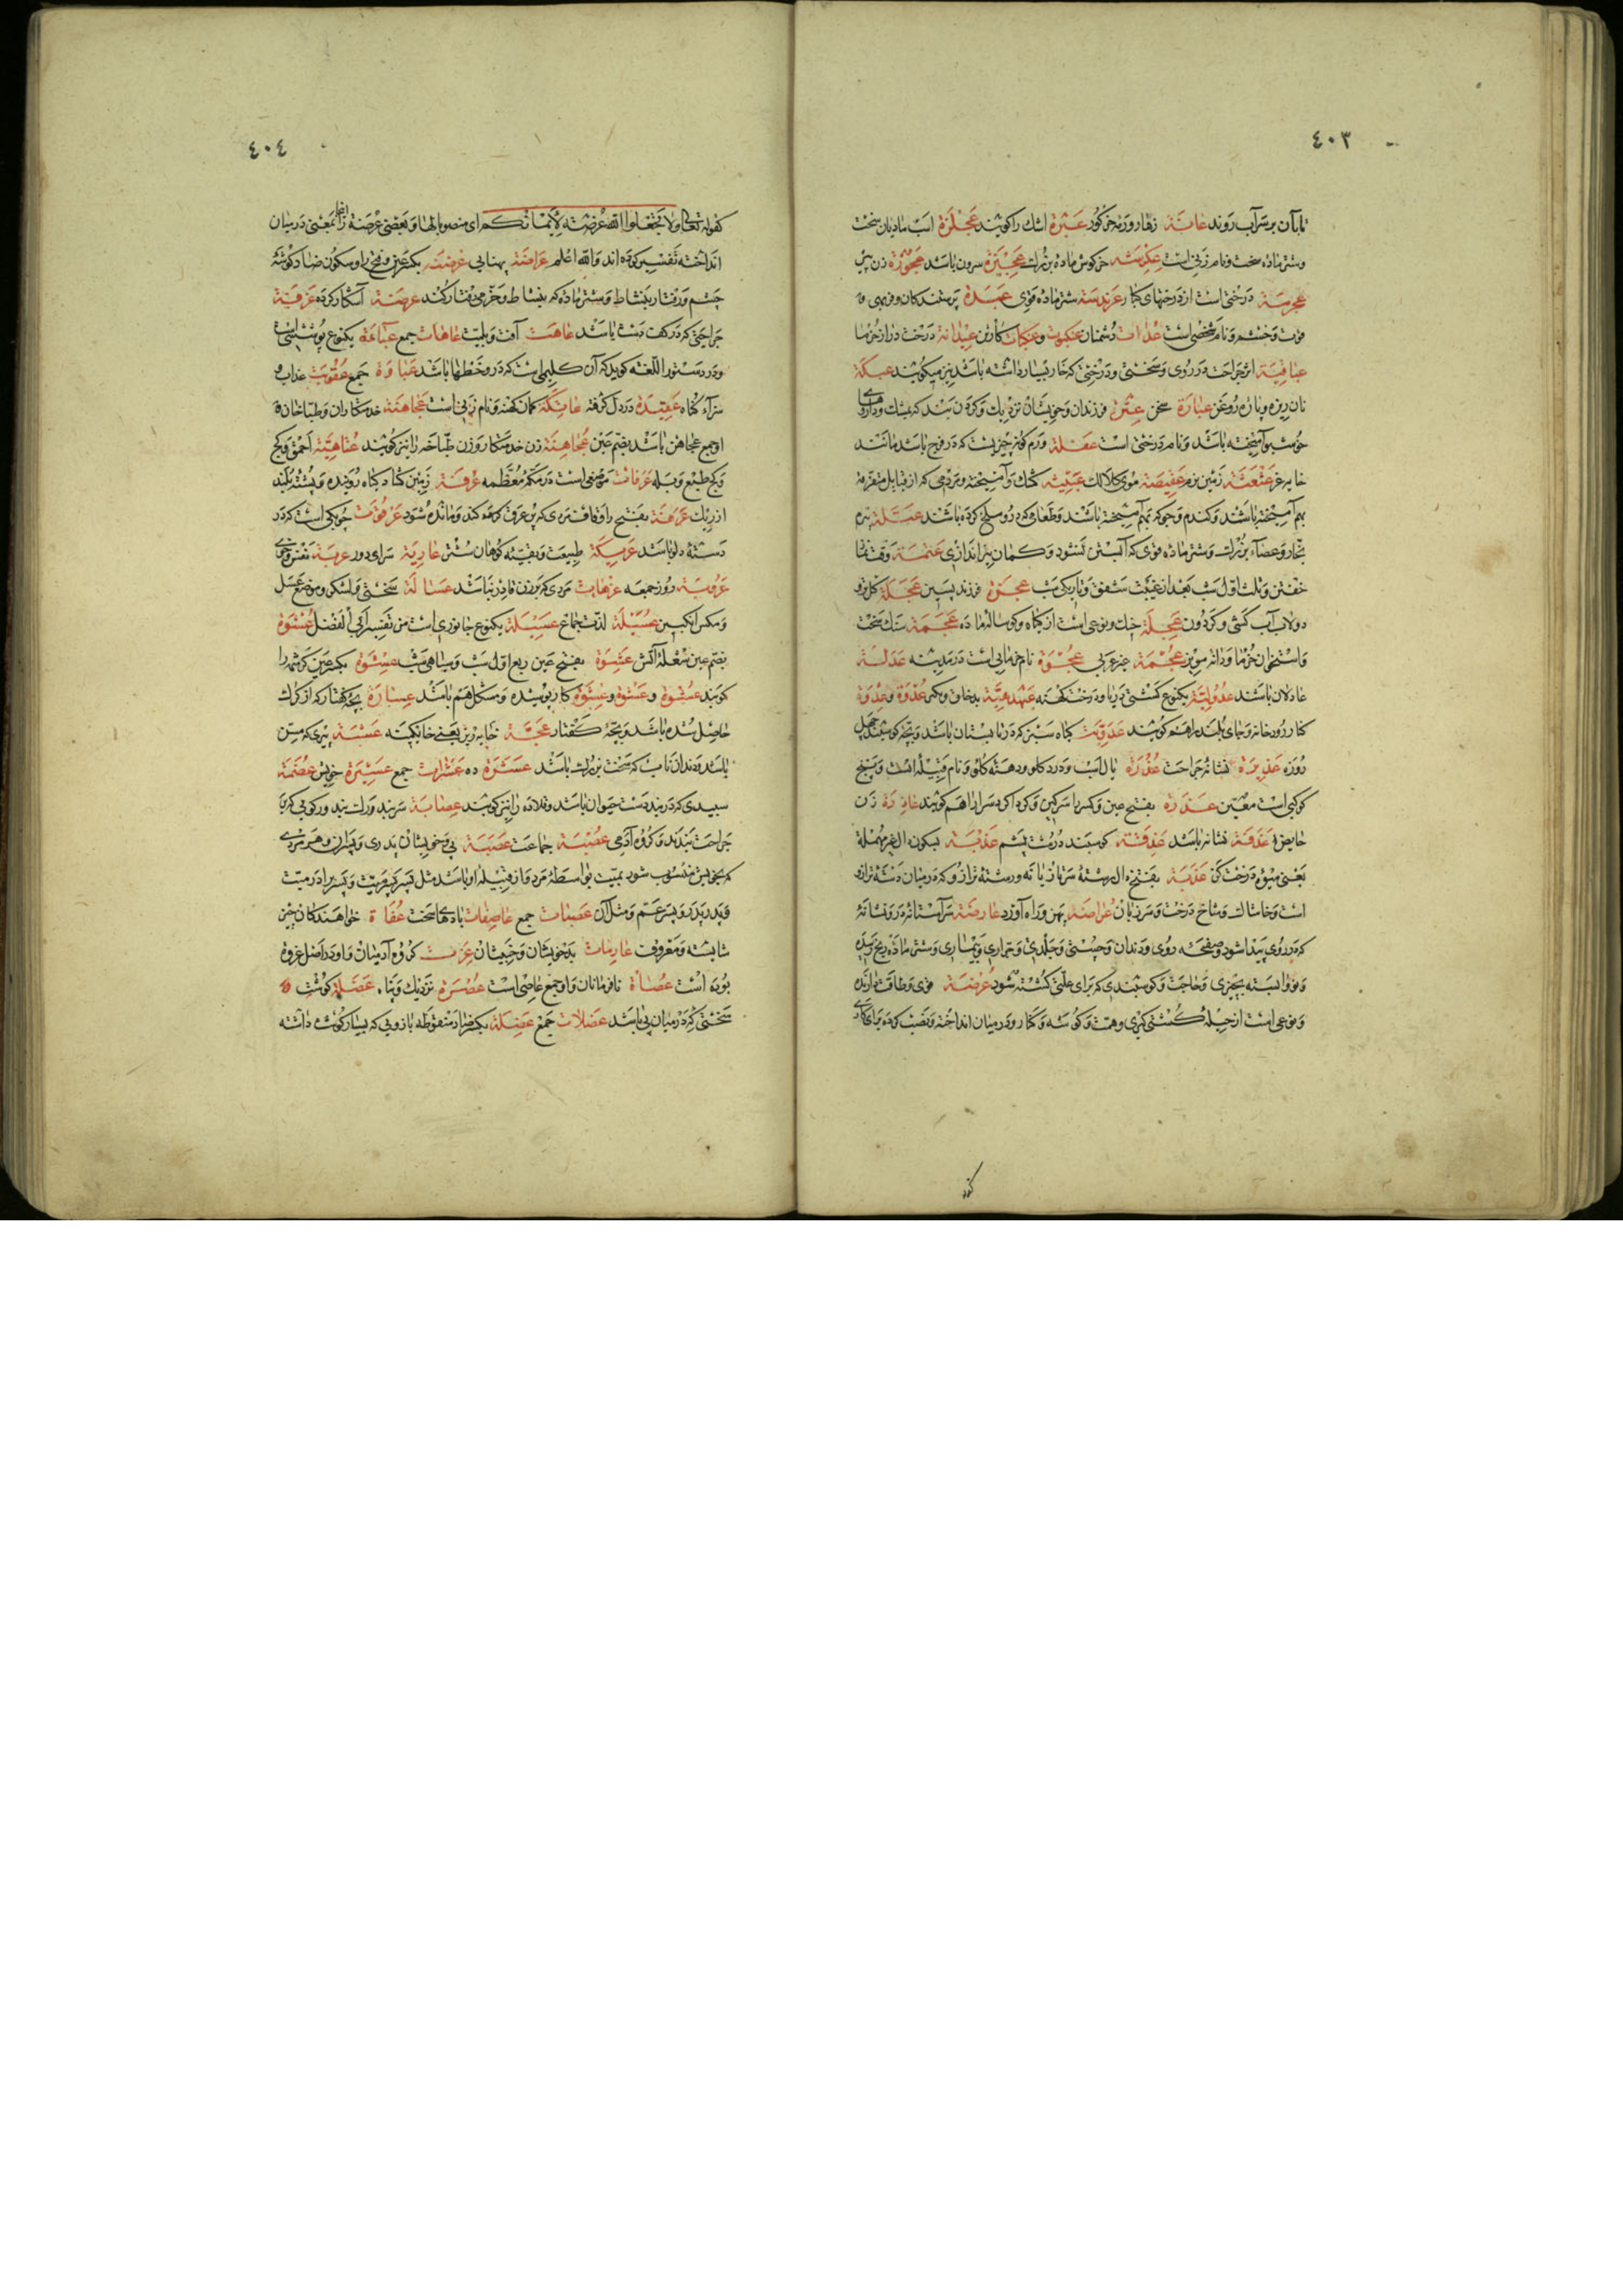 ٤٠٣
تا بآن بر سر آب روند عانة زهار و رمه خر كور عبرة اشك را كويند عجلزة اسب ماديان سخت
وشتر ماده سخت ونام زنى است عكرشه خركوش ماده بزرك عجيزة سرون باشد عجوزة زن پير
عجرمة درختى است از درختهاى كبار عرندسة شتر ماده قوى عبدة پرستندكان وفربهى و
قوت وخشم ونام شخصى است عدات دشمنان عنكبوت وعنكبات كارتن عيدانه درخت دراز خرما
عباقية اثر جراحت در روى وسختى ودرختى كه خار بسيار داشته باشد نيز ميكويند عبكة
نان ريزه وپاره روغن عبارة سخن عترة فرزندان وخويشان نزديك وكردن بند كه بمشك وداروى
خوشبو آميخته باشد ونام درختى است عفلة ورم كونه چيزيست كه در فرج باشد مانند
خايه غر عثعثة زمين نرم عقيصة موى كلالك عبيثه كشك وآميخته ومردمى كه از قبايل متفرقه
بهم آميخته باشند وكندم وجو كه بهم آميخته باشند وطعامى كه در و ملخ كرده باشند عسلة تبرم
نجار وعصاء بزرك وشتر ماده قوى كه آبستن نشود وكمان تير اندازى عتمة وقت نماز
خفتن وثلث اول شب بعد از غيبت شفق وتاريكى شب عجزة فرزند پسين عجلة كل و
دولاب آب كشى وكردون عجلة خيك ونوعى است از كياه وكوساله ماده عجمة سنك سخت
واستخوان خرما ودانه مويز عجمة جز عربى عجوة نام خرمايى است در مدينه عدالة
عادلان باشند عدولية يكنوع كشتى دريا ودرخت كهنه عيدهية بدخلق ومتكبر عدوة وعدوة
كنار رودخانه وجاى بلند را هم كويند عدوية كياه سبز كه در تابستان باشد وبچه كوسفند چهل
روزه عذيرة نشانه جراحت عذرة يال اسب ودرد كلو ودهنه كلو ونام قبيله است وپنج
كوكبى است معين عذرة بفتح عين وكسر يا سركين وكرداكرد سراى را هم كويند عاذرة زن
حايض و عذقة نشانه باشد عذقة كوسبند درشت پشم عذبة بسكون الغير مهمله
يعنى ميوه درخت كز عذبة بفتح ذال رشته سر تازيانه ورشته ترازو كه درميان دسته ترازو
است وخاشاك وشاخ درخت وسر زبان عراضة پهن وراه آورد عارضة سر آستانه در ونشانه
كه در روى پيدا شود وصفحه روى ودندان وچستى وجلدى وتيمارى وبيمارى وشتر ماده رنج رسيده
ونو وابسته بچيزى وحاجت وكوسبندى كه براى علتى كشته شود عرضة قوى وطاقت دارنده
ونوعى است از حيله كشتى كيرى وهمت وكوشه وكنار ودرميان انداخته ونصب كرده بجاى كارى
كفوله
٤٠٤
كقوله تعالى ولا تجعلوا الله عرضة لأيمانكم اى منصوبا لها وبعضى عرضة را اينجا بمعنى درميان
انداخته تفسير كرده اند والله اعلم عراضة پهنايى عرضنة بكسر عين وفتح را وسكون ضاد كوشه
چشم ورفتار بنشاط وشتر ماده كه بنشاط وخرمى رفتار كند عرصة آشكار كرده عرفة
جراحتى كه در كف دست باشد عاهت آفت وبليت عاهات جمع عباءة يكنوع پوششى است
ودر دستور اللغه كويد كه آن كليمى است كه در و خطها باشد عباوة جمع عقوبت عذاب و
سزاء كناه عقيدة در دل كرفته عاتكة كمان كهنه ونام زنى است عجاهنة خدمتكاران وطباخان و
او جمع عجاهن باشد بضم عين عجاهنة زن خدمتكار وزن طباخه را نيز كويند عتاهية احمق وكج
وكج طبع وبله عرفات موضعى است در مكه معظمه عرفة زمين كشاد كياه روينده وپشته بلند
از ريك عرفة بفتح را وقاف مردى كه پر عرق كند ومانده شود عرقوت چوبكى است كه در
دسته دلو باشد عريكة طبيعت وبقيه كوهان شتر عارية سراى دور عربة نفس وجوى
عروبة روز جمعه عزهاة مردى كه بر زن قادر نباشد عسالة سختى ولشكر وموضع عسل
ومكس انكبين عسيلة لذت جماع عسيلة يكنوع جانورى است من تفسير ابى الفضل عشوة
بضم عين شعله آتش عشوة بفتح عين ربع اول شب وسياهى شب عشوة بكسر عين كرشمه را
كويند عشوة وعشوة وعشوة كار پوشيده ومشكل هم باشد عسبارة بچه كفتار كه از كرك
حاصل شده باشد وبچه كفتار عجة خايه ريز يعنى خاكينه عشمة پيرى كه مسن
باشد ودندان ناب كه سخت بزرك باشد عشرة ده عشرات جمع عشيرة خويش عصمة
سپيدى كه در بند دست حيوان باشد وقلاده را نيز كويند عصابة سربند ورك بند وركوئى كه بر
جراحت بندند وكروه آدمى عصبة جماعت عصبة پى وخويشان پدرى وپسران وهر مردى
كه بخويش منسوب شود بميت بواسطه مرد واز قبيله او باشد مثل پسر كه بقربت وپسر برادر ميت
وپدر پدر وپسر عم ومثل آن عصبات جمع عاصفات بادهاى سخت عفاة خواهندكان چيز
شايسته ومعروف عارضات بدخويشان وخبيثان عزت كروه آدميان واو در اصل عزوه
بوده است عصاة نافرمانان واو جمع عاصى است عصرة نزديك وپناه عضلة كوشت و
سختى كه درميان پى باشد عضلات جمع عضلة بكسر ضاد منقوطه بازويى كه بسيار كوشت داشته